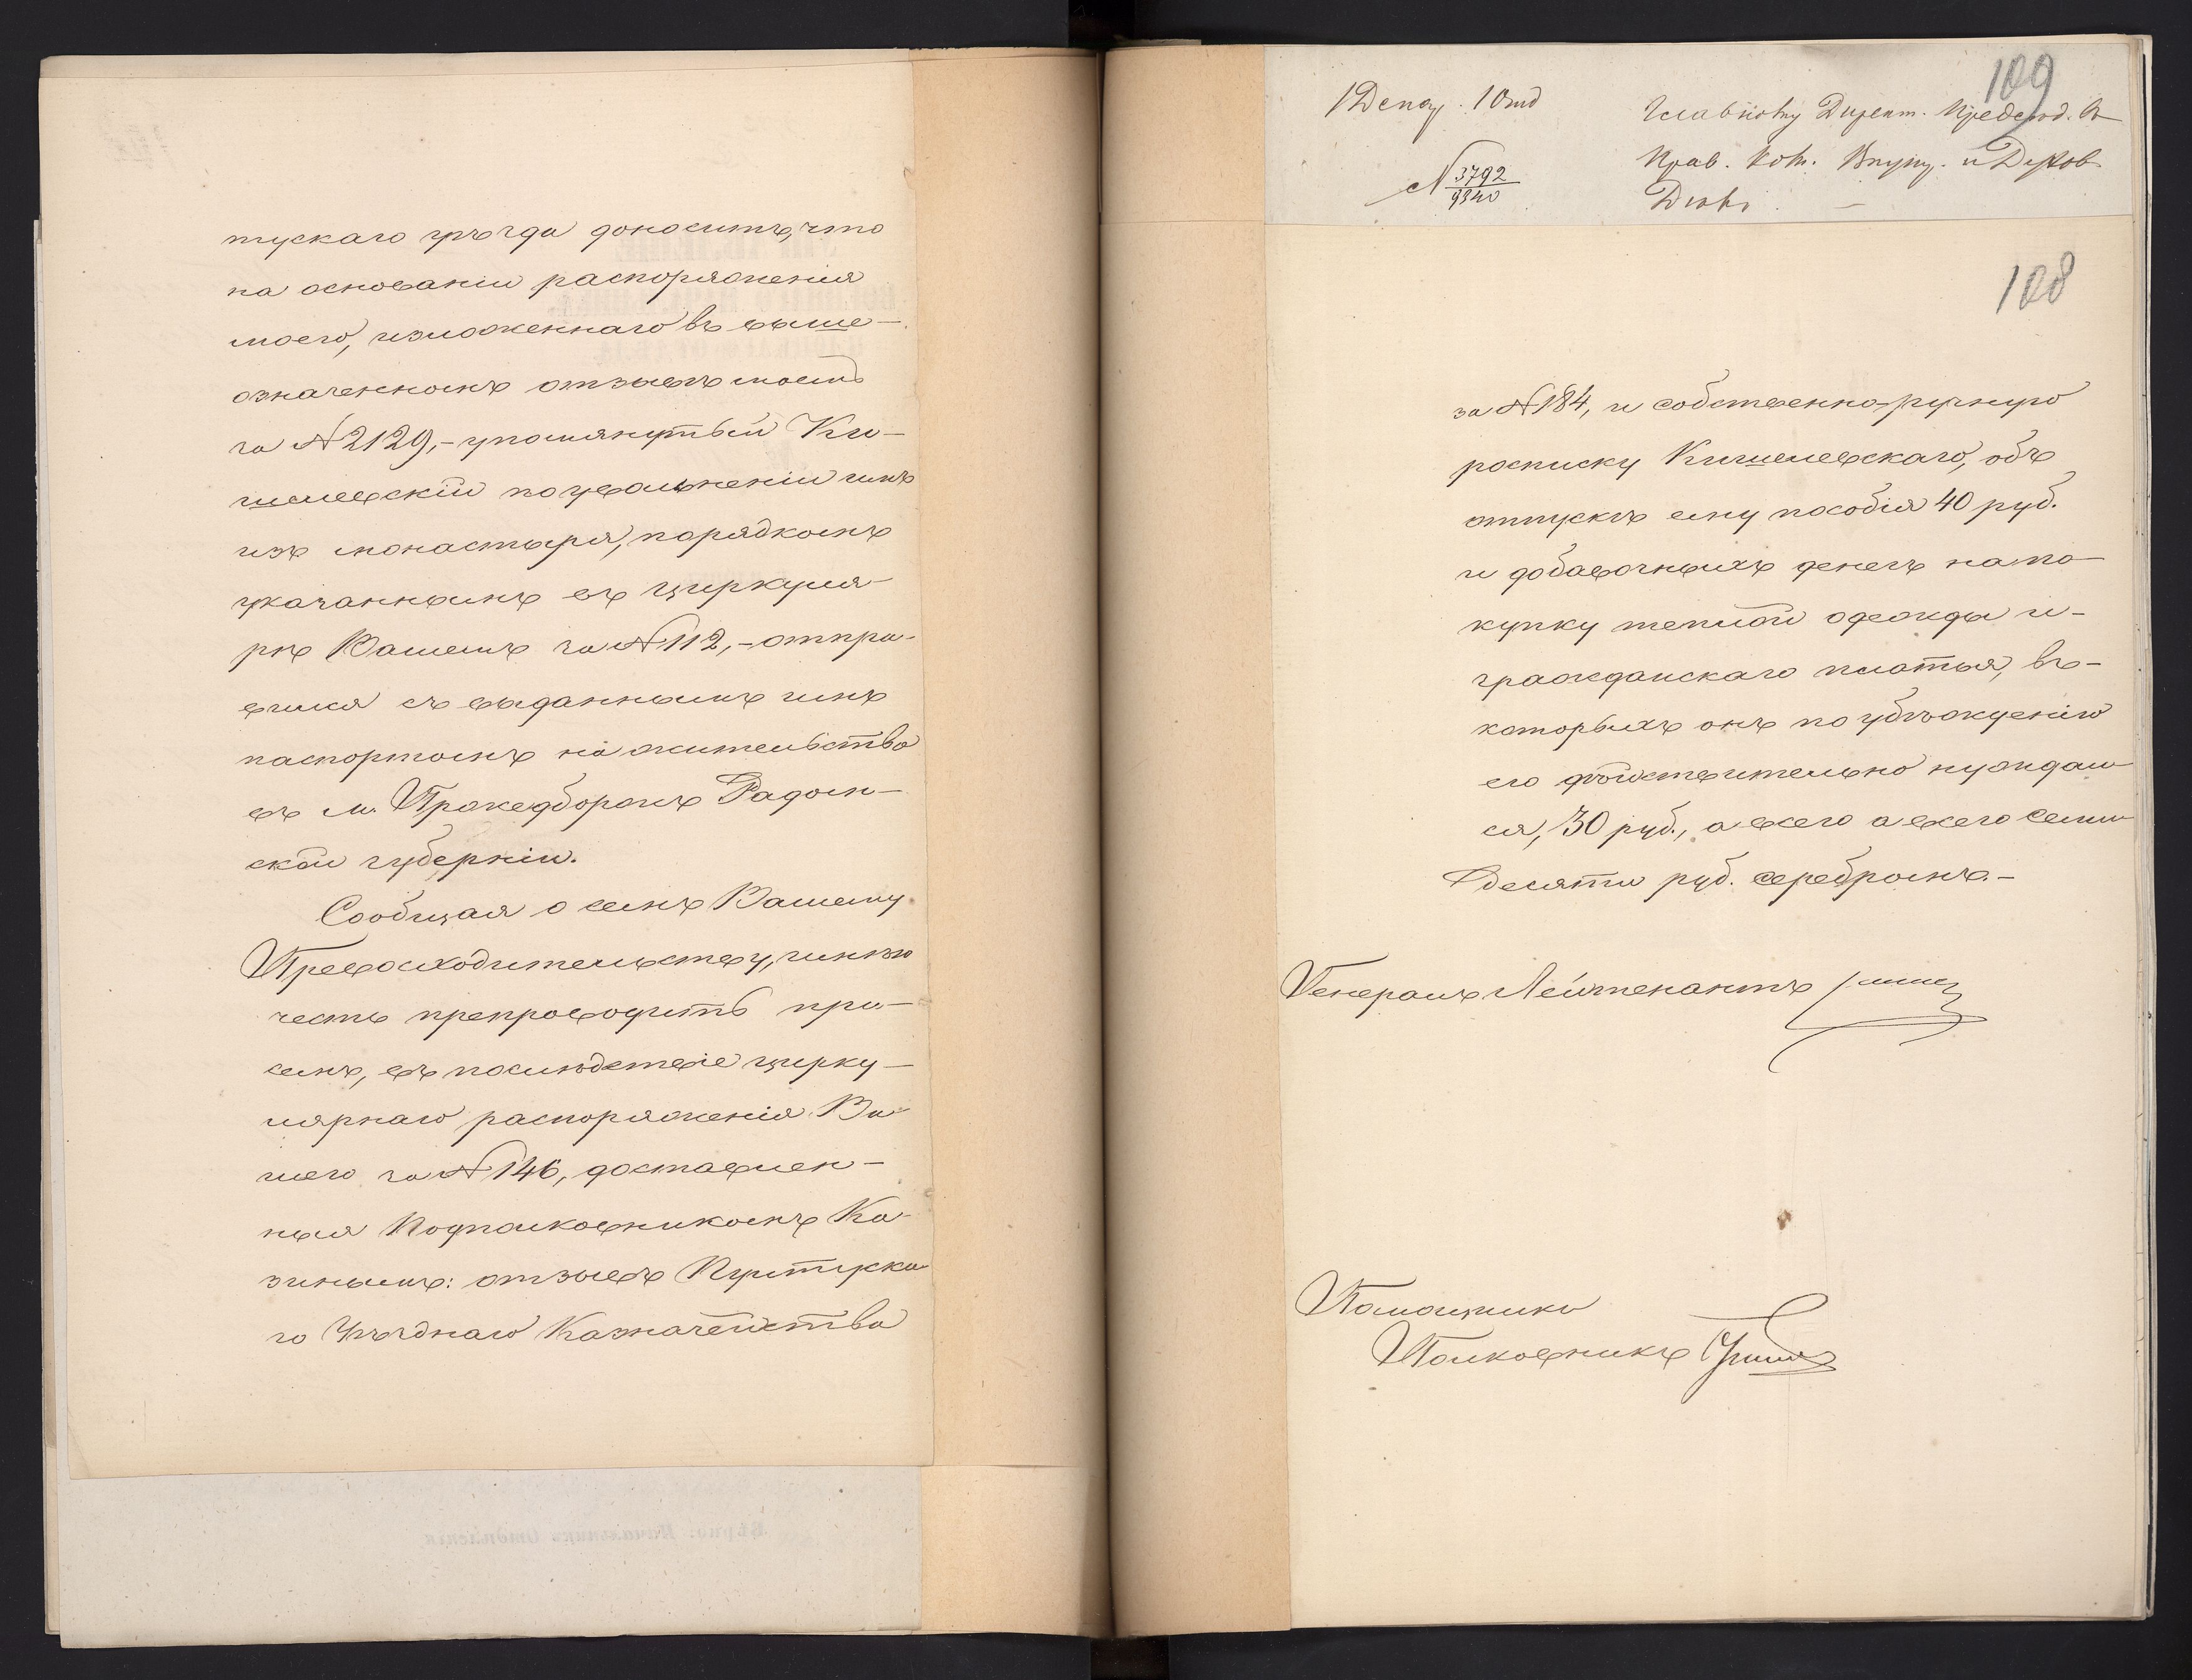 тускаго уѣзда доноситъ, что
на основаніи распоряженія
моего, изложеннаго въ выше-
означенномъ отзывѣ моемъ
за №2129,- упомянутый Ки-
шелевскій по увольненіи имъ
изъ монастыря, порядкомъ
указаннымъ въ циркуля-
рѣ Вашемъ за №112,- отпра-
вился съ выданнымъ имъ
паспортомъ на жительство
въ м. Пржедборжъ Радом-
ской губерніи.
Сообщая о семъ Вашему
Превосходительству, имѣю
честь препроводить при-
семъ, въ послѣдствіе цирку-
лярнаго распоряженія Ва-
шего за №146, доставлен-
ныя Подполковникомъ Ка-
зинымъ: отзывъ Пултуска-
го Уѣзднаго Казначейства
1 Депар. 1 Отд
№ 3792
9340
Главному Дирек. Предсѣд. въ
Прав. Ком. Внутр. и Духов.
Дѣлъ.
109
108
за №184, и собственно-ручную
росписку Кишелевскаго, объ
отпускѣ ему пособія 40 руб.
и добавочныхъ денегъ на по-
купку теплой одежды и-
гражданскаго платья, въ-
которыхъ онъ по убѣжденію
его дѣйствительно нуждал-
ся, 30 руб., а всего а всего семь-
десяти руб. серебромъ.-
Генералъ Лейтенантъ
Помощникъ
Полковникъ